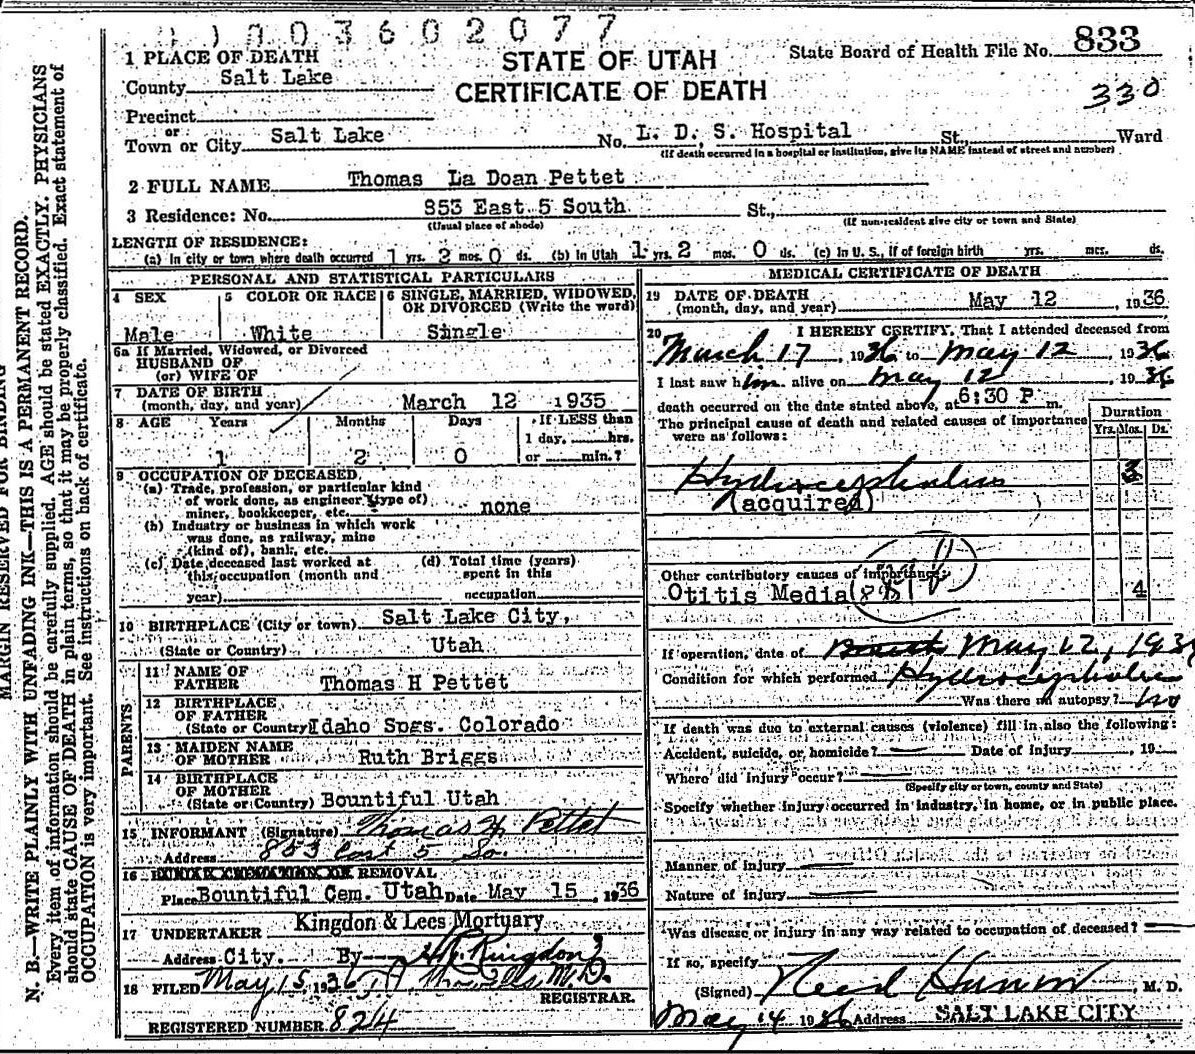 1 1 0 0 3 6 0 2 0 7 7
1 PLACE OF DEATH
STATE OF UTAH
CERTIFICATE OF DEATH
State Board of Health File No. 833
330
County Salt Lake
Precinct
or
Town or City Salt Lake No. L. D. S. Hospital St., Ward
(If death occurred in a hospital or institution, give its NAME instead of street and number)
2 FULL NAME Thomas La Doan Pettet
3 Residence: No. 853 East 5 South St.,
(Usual place of abode) (If non-resident give city or town and State)
LENGTH OF RESIDENCE:
(a) In city or town where death occurred 1 yrs. 2 mos. 0 ds. (b) In Utah 1 yrs. 2 mos. 0 ds. (c) In U. S., if of foreign birth yrs. mos. ds.
PERSONAL AND STATISTICAL PARTICULARS
4 SEX
Male
5 COLOR OR RACE
White
6 SINGLE, MARRIED, WIDOWED,
OR DIVORCED (Write the word)
Single
6a If Married, Widowed, or Divorced
HUSBAND OF
(or) WIFE OF
7 DATE OF BIRTH
(month, day, and year) March 12 1935
8 AGE Years Months Days If LESS than
1 day, hrs.
or min.?
1 2 0
9 OCCUPATION OF DECEASED
(a) Trade, profession, or particular kind
of work done, as engineer (type of)
miner, bookkeeper, etc. none
(b) Industry or business in which work
was done, as railway, mine
(kind of), bank, etc.
(c) Date deceased last worked at
this occupation (month and
year)
(d) Total time (years)
spent in this
occupation
10 BIRTHPLACE (City or town) Salt Lake City,
(State or Country) Utah
PARENTS
11 NAME OF
FATHER Thomas H Pettet
12 BIRTHPLACE
OF FATHER
(State or Country) Idaho Spgs. Colorado
13 MAIDEN NAME
OF MOTHER Ruth Briggs
14 BIRTHPLACE
OF MOTHER
(State or Country) Bountiful Utah
15 INFORMANT (Signature) Thomas H Pettet
Address 853 East 5 So.
16 REMOVAL
Place Bountiful Cem. Utah Date May 15, 1936
17 UNDERTAKER Kingdon & Lees Mortuary
Address City. By Kingdon
18 FILED May 15, 1936 M.D.
REGISTRAR.
REGISTERED NUMBER 824
MEDICAL CERTIFICATE OF DEATH
19 DATE OF DEATH
(month, day, and year) May 12, 1936
20 I HEREBY CERTIFY, That I attended deceased from
March 17, 1936 to May 12, 1936
I last saw him alive on May 12, 1936
death occurred on the date stated above, at 6:30 P m.
The principal cause of death and related causes of importance
were as follows:
Duration
Yrs. Mos. Ds.
Hydrocephalus 3
(acquired)
Other contributory causes of importance:
Otitis Media 4
If operation, date of May 12, 193
Condition for which performed Hydrocephalus
Was there an autopsy? no
If death was due to external causes (violence) fill in also the following:
Accident, suicide, or homicide? Date of injury , 19
Where did injury occur?
(Specify city or town, county and State)
Specify whether injury occurred in industry, in home, or in public place.
Manner of injury
Nature of injury
Was disease or injury in any way related to occupation of deceased?
If so, specify
(Signed) Reid , M. D.
May 14 1936 Address SALT LAKE CITY
MARGIN RESERVED FOR BINDING
N. B.—WRITE PLAINLY WITH UNFADING INK—THIS IS A PERMANENT RECORD.
Every item of information should be carefully supplied. AGE should be stated EXACTLY. PHYSICIANS
should state CAUSE OF DEATH in plain terms, so that it may be properly classified. Exact statement of
OCCUPATION is very important. See instructions on back of certificate.